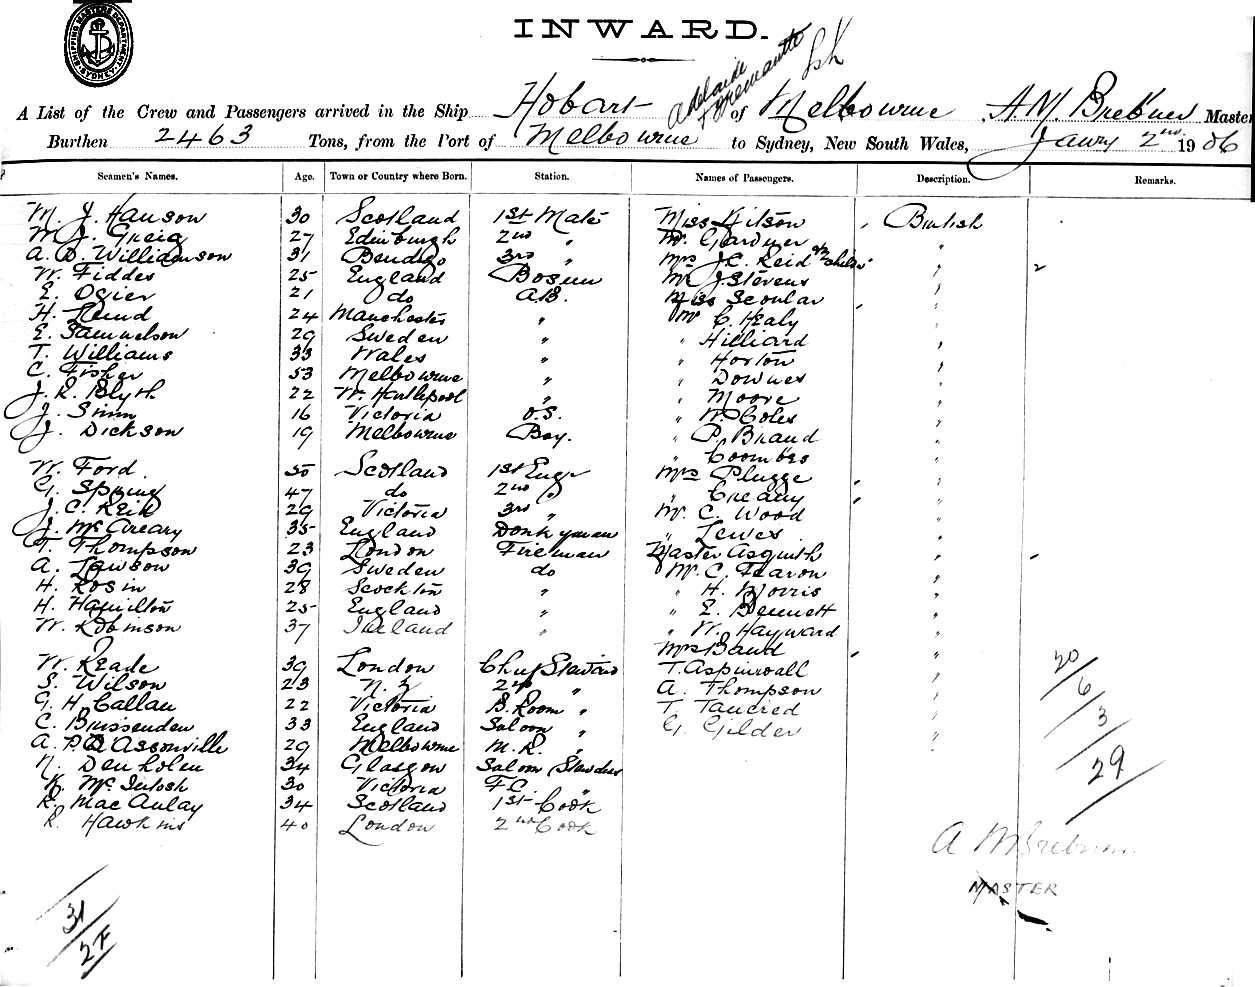 SHIPPING MASTERS DEPARTMENT
SYDNEY
INWARD.
Adelaide
+ Fremantle
A List of the Crew and Passengers arrived in the Ship Hobart of Melbourne A. M. Brebner Master
Burthen 2463 Tons, from the Port of Melbourne to Sydney, New South Wales, Jany 2nd 1906
Seamen's Names. Age. Town or Country where Born. Station. Names of Passengers. Description. Remarks.
30 Scotland 1st Mate Miss British
27 Edinburgh 2nd " Mr Gardner "
A. Williamson 31 Bendigo 3rd " Mrs J.C. Reid "
W. Fiddes 25 England Bosun Mr J. Stevens "
E. Ogier 21 do A.B. Miss Scoular "
H. 24 Manchester " Mr C. Healy "
E. Samuelson 29 Sweden " " Hilliard "
T. Williams 33 Wales " " Horton "
C. Fisher 53 Melbourne " " Downes "
J. R. Blyth 22 W. Hartlepool " " Moore "
J. 16 Victoria O.S. " W. Coles "
J. Dickson 19 Melbourne Boy. " P. Braund "
" Coombes "
W. Ford 50 Scotland 1st Engr Mrs Plugge "
G. Spring 47 do 2nd " " Creamy "
J. C. Reid 29 Victoria 3rd " Mr C. Wood "
J. McCreary 35 England Donkeyman " Lewes "
T. Thompson 23 London Fireman Master Asquith "
A. Lawson 39 Sweden do Mr C. Fearon "
H. Rosin 28 Stockton " " H. Morris "
H. Hamilton 25 England " " E. Bennett "
W. Robinson 37 Ireland " " W. Hayward "
Mrs Baud "
W. Reade 39 London Chief Steward T. Aspinwall "
S. Wilson 23 N.Z 2nd " A. Thompson "
G. H. Callan 22 Victoria B. Room " T. Tancred "
C. Brissenden 33 England Saloon " G. Gilder "
A. 29 Melbourne M.R. "
N. Denholm 34 Glasgow Saloon
McIntosh 30 Victoria F.C. "
R. MacAulay 34 Scotland 1st Cook
R. Hawkins 40 London 2nd Cook
20
6
3
29
A M Brebner
MASTER
31
27